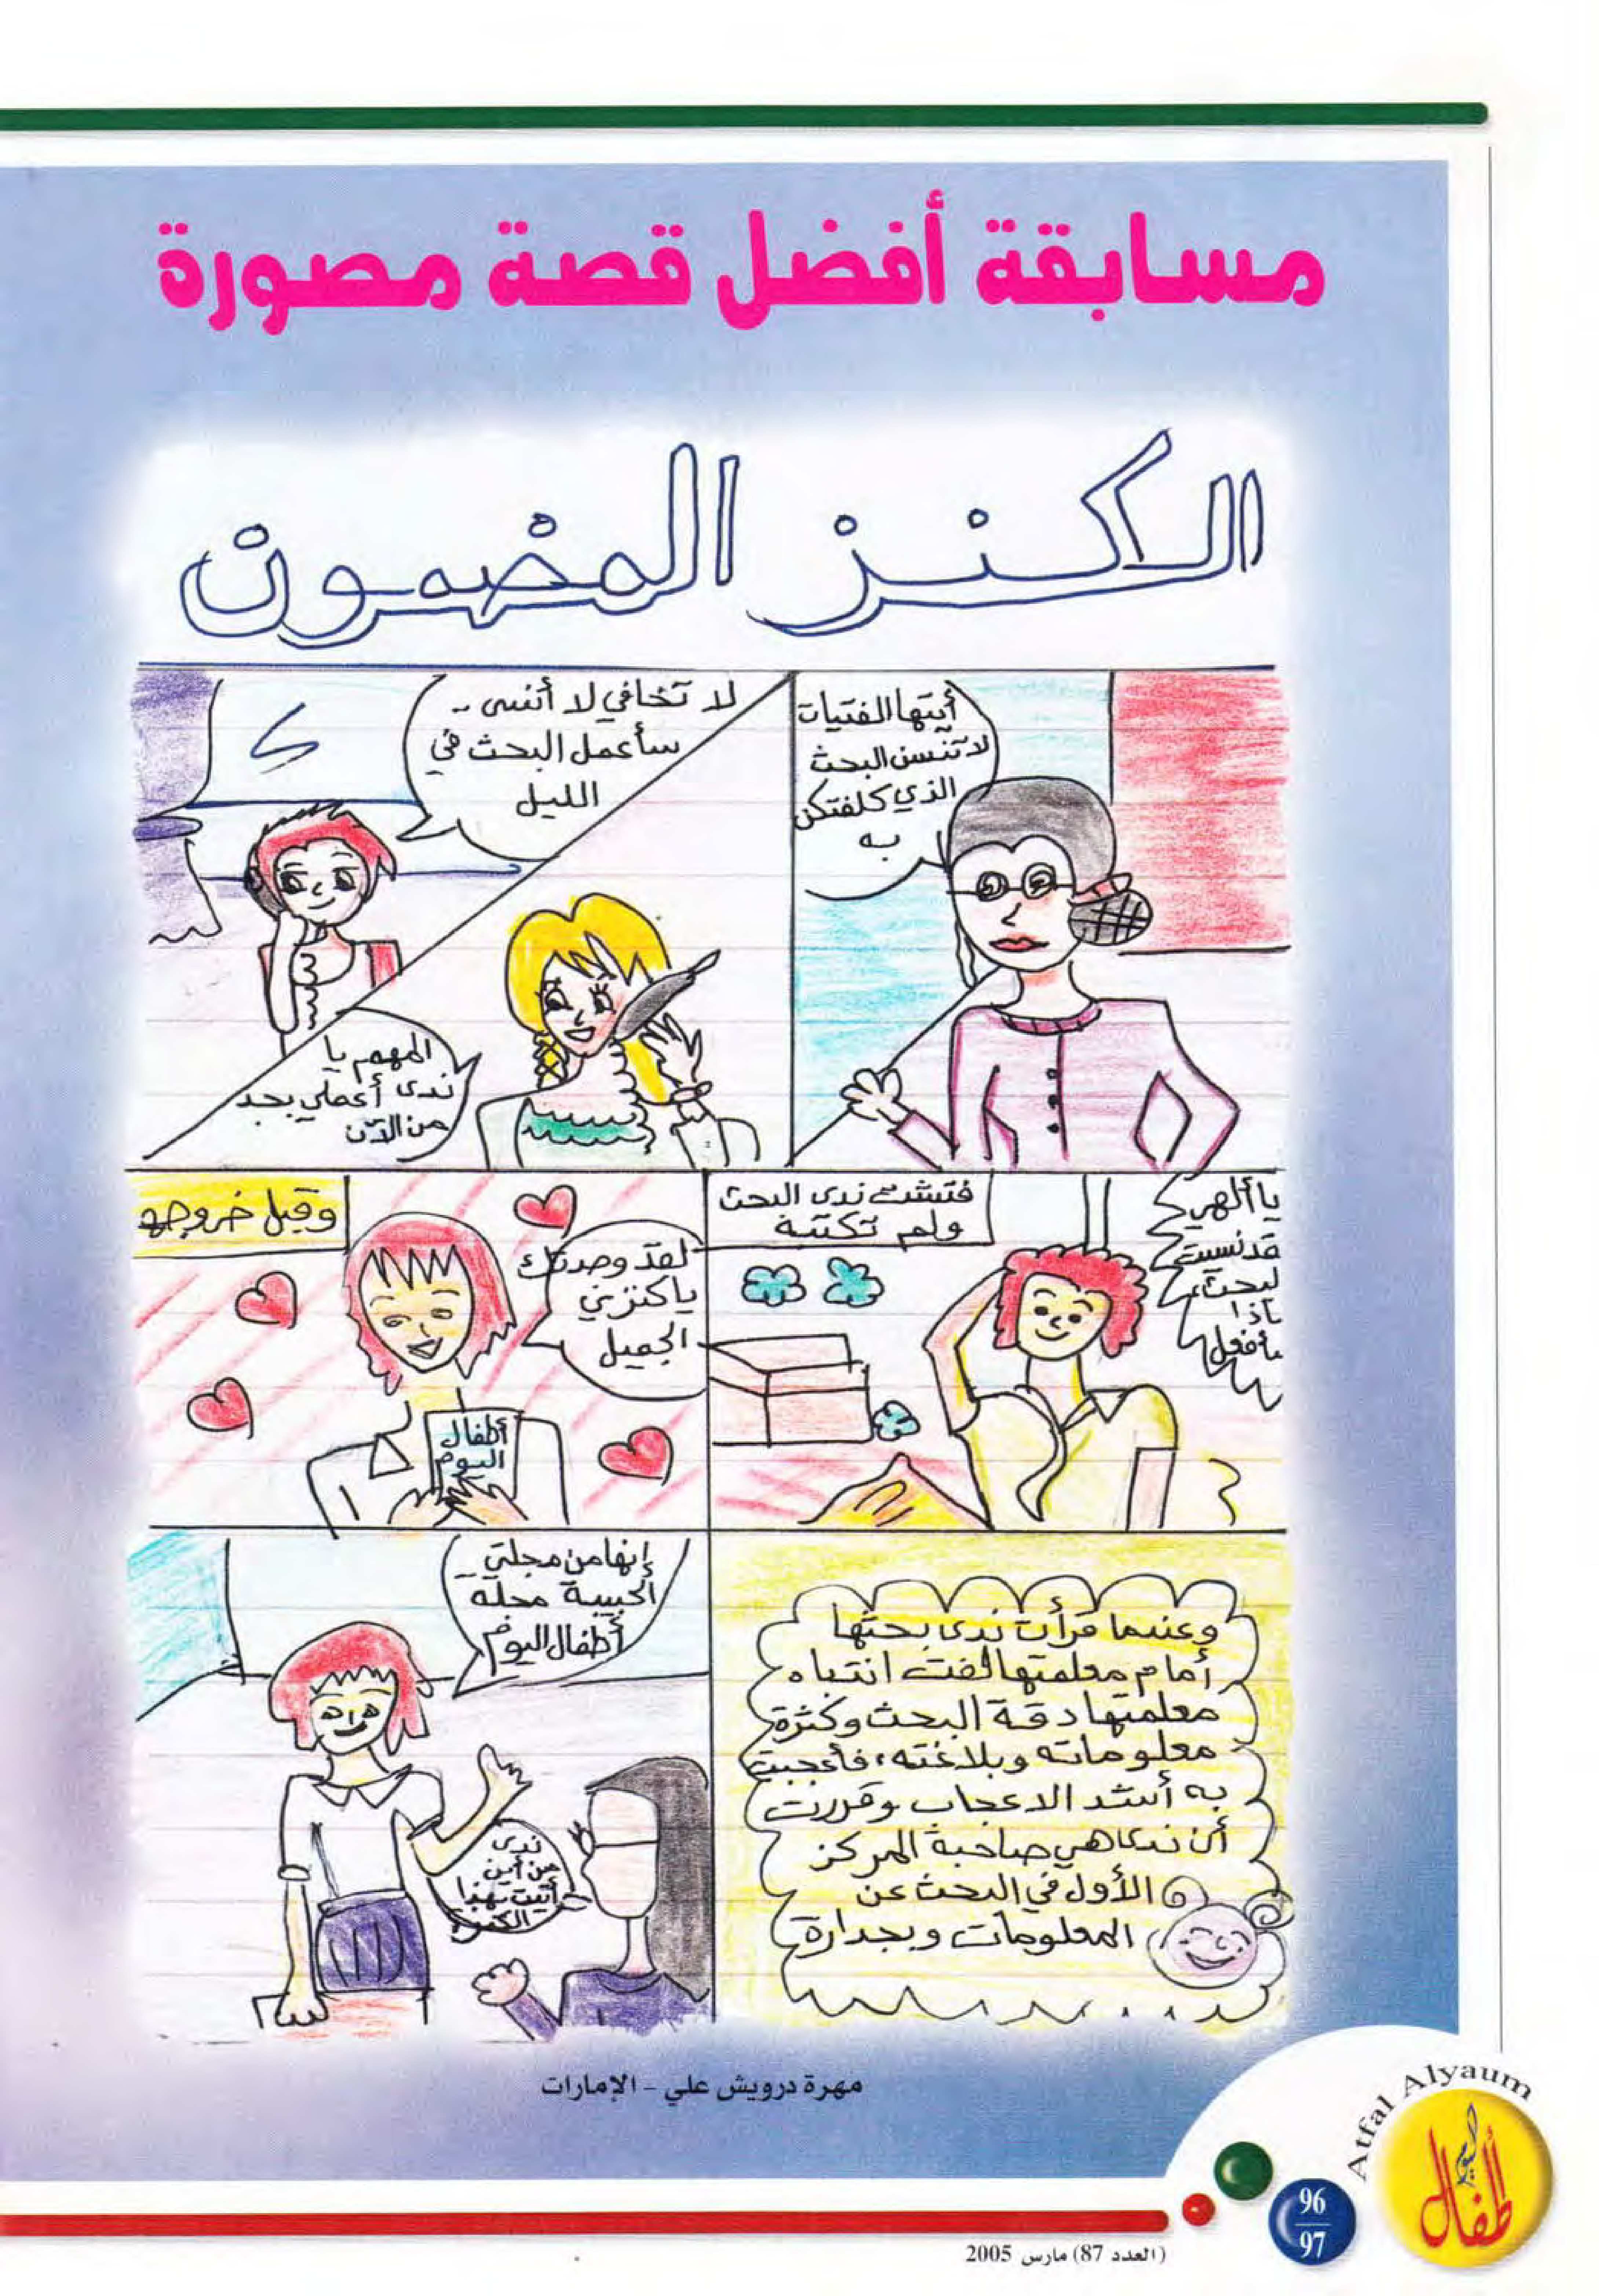 مسابقة أفضل قصة مصورة
الكنز المضمون
أيتها الفتيات
لا تنسن البحث
الذي كلفتكن
به
لا تخافي لا أنسى ..
سأعمل البحث في
الليل
المهم يا
ندى أعملي بجد
من الآن
يا ألهي
قد نسيت
لبحث،
فتشت ندى البحث
ولم تكتبة
لقد وجدتك
يا كنزي
الجميل
وقبل خروجه
أطفال
اليوم
وعندما قرأت ندى بحثها
أمام معلمتها لفت انتباه
معلمتها دقة البحث وكثرة
معلوماته وبلاغته، فأعجبت
به أشد الاعجاب وقررت
أن ندى هي صاحبة المركز
الأول في البحث عن
المعلومات وبجدارة
إنها من مجلتي
الحبيبة مجلة
أطفال اليوم
ندى
من أين
أتيت بهذا
مهرة درويش علي - الإمارات
Atfal Alyaum
أطفال اليوم
96
97
(العدد 87) مارس 2005